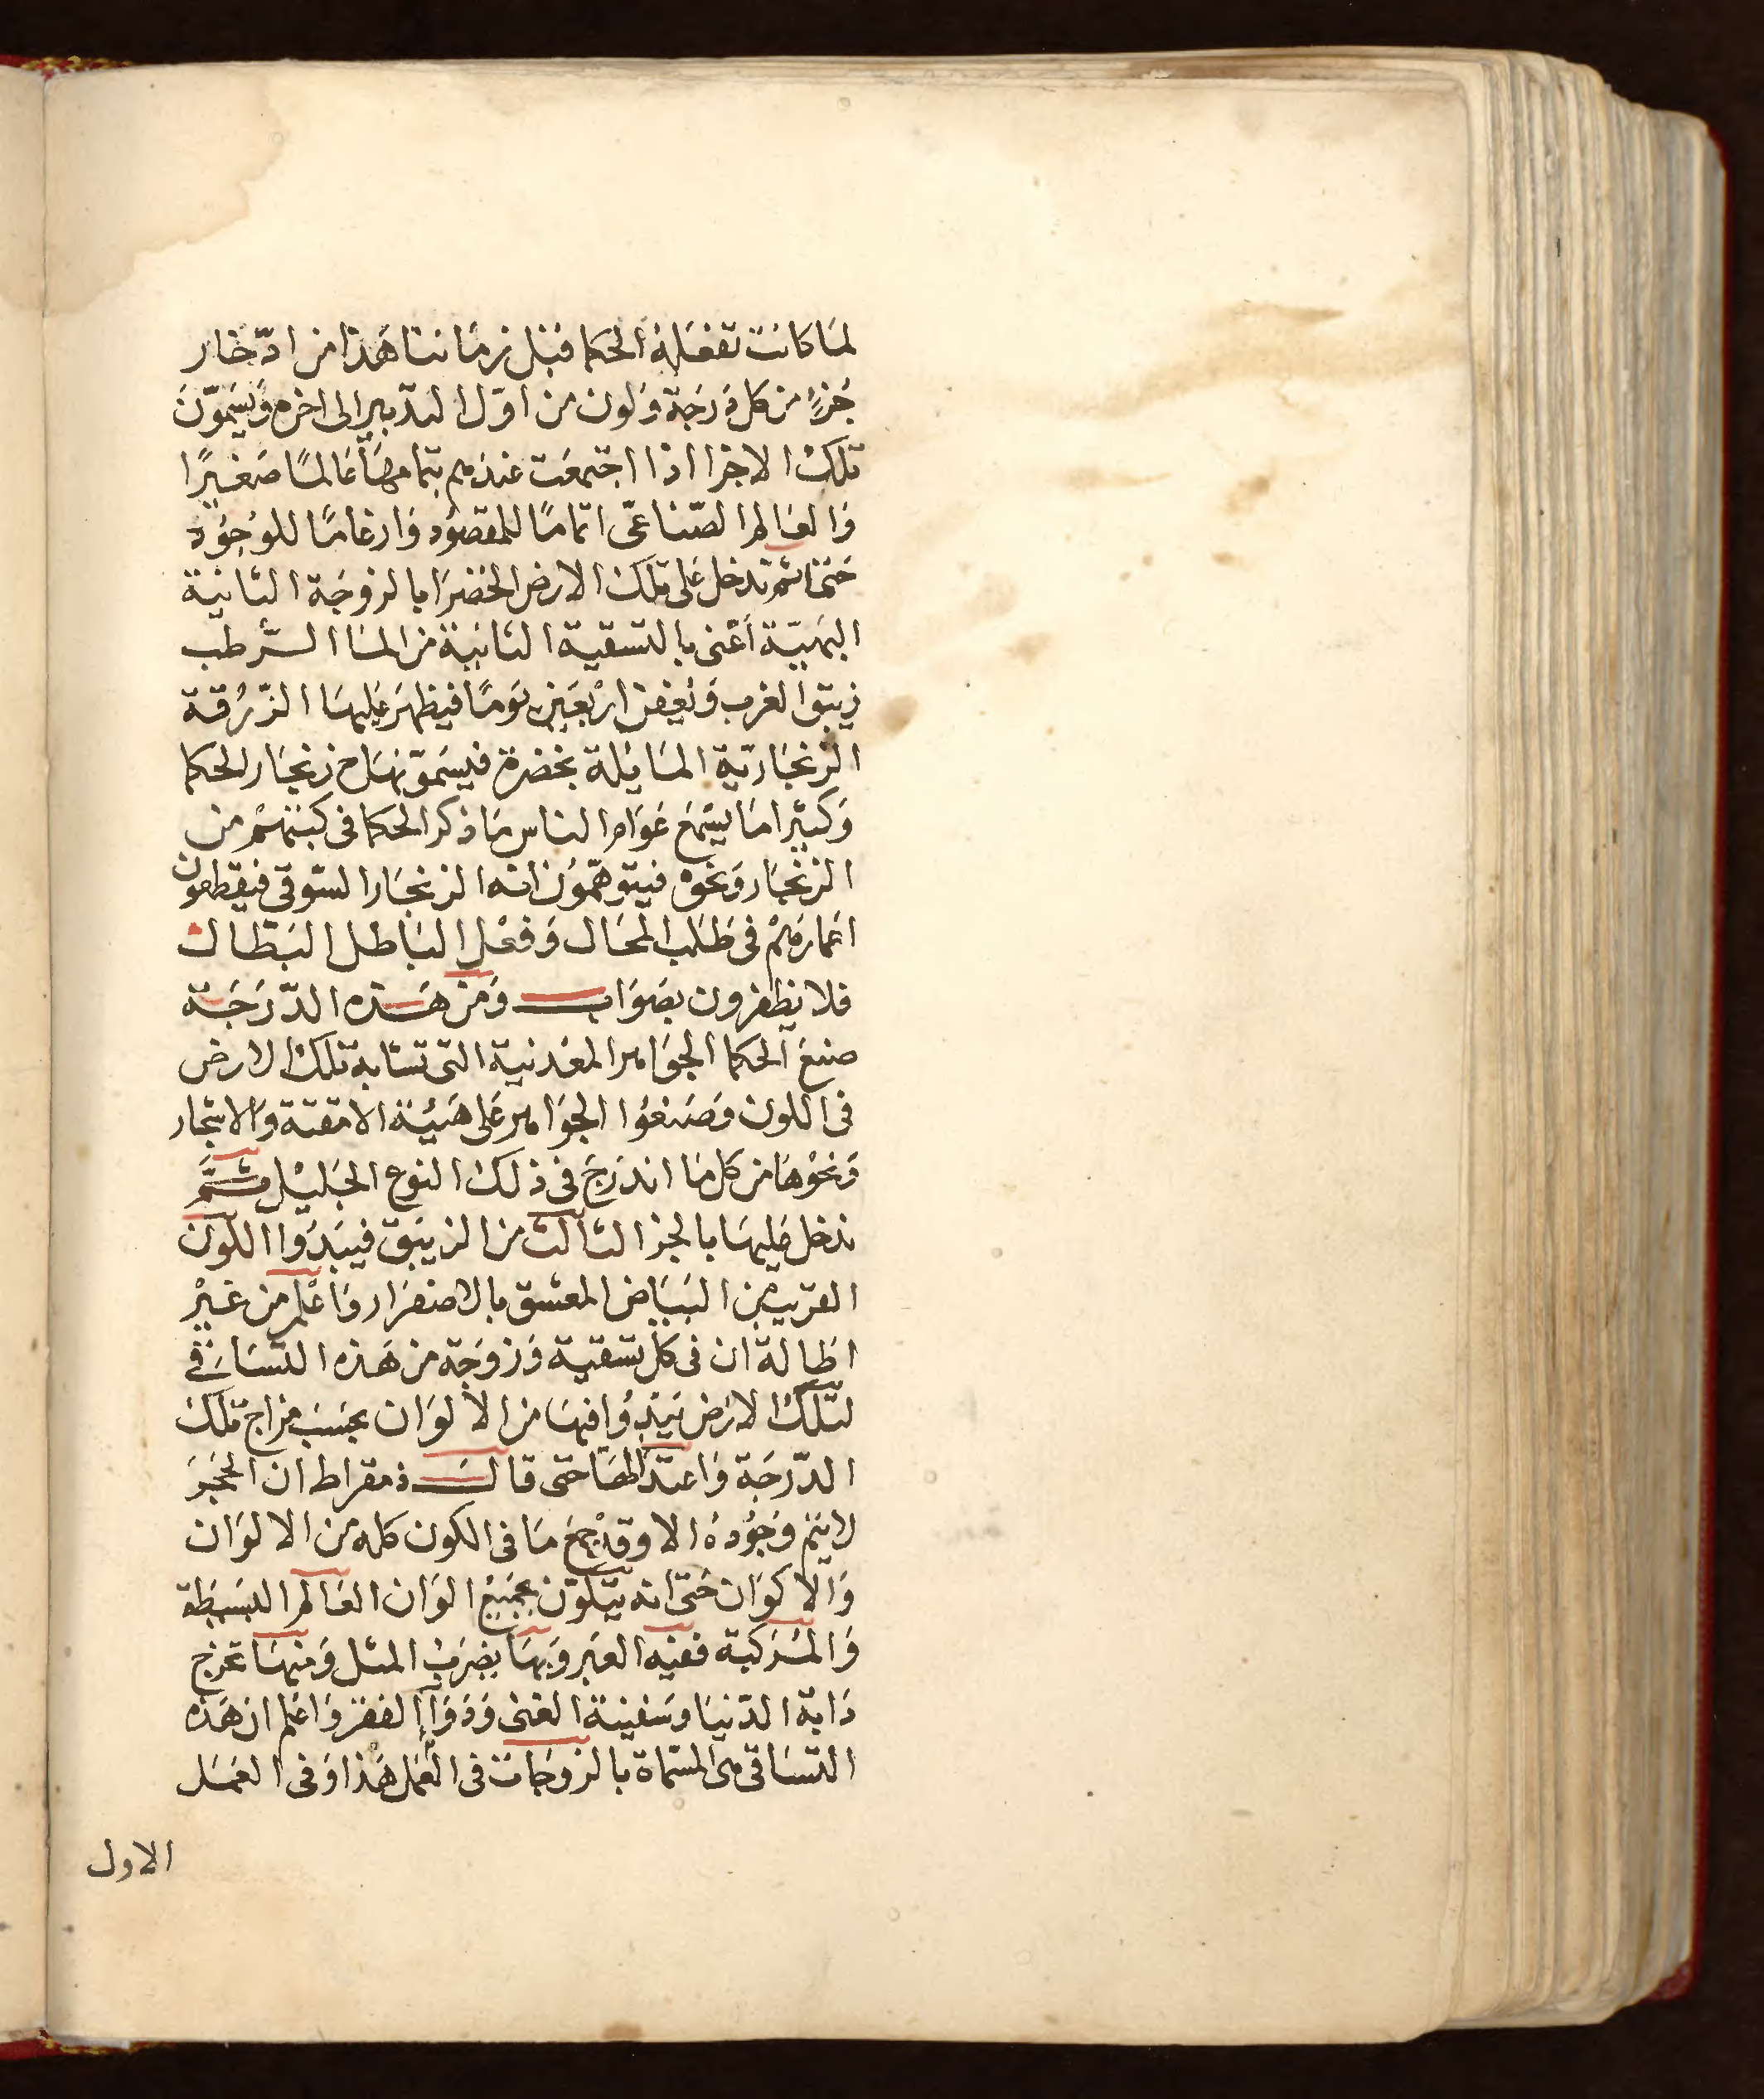 لما كانت تفعله الحكما قبل زماننا هذا من ادّخار
جزءٍ من كل درجة ولون من اول التدبير الى اخره ويسمّون
تلك الاجزا اذا اجتمعت عندهم بتمامها عالمًا صغيرًا
والعالم الصّناعىّ اتمامًا للمقصود وارغامًا للوجود
ختما ثم تدخل على تلك الارض الخضرا بالزوجة الثانية
البهيّة أعنى بالتسقية الثانية من الما السرطب
زيبق الغرب وتعفن اربعين يومًا فيظهر عليها الزّرقة
الزنجاريّة المايلة بخضرة فيسمّونها ح زنجار الحكما
وكثيرا ما يسمع عوام الناس ما ذكر الحكما فى كتبهم من
الزنجار ونحوه فيتوهّمون انه الزنجار السّوقى فيقطعون
اعمارهم فى طلب المحال وفعل الباطل البطال
فلا يظفرون بصواب ومن هذه الدّرجة
صنع الحكما الجواهر المعدنية التى تشابه تلك الارض
فى اللون وصنعوا الجواهر على هيئة الامتعة والاشجار
ونحوها من كل ما اندرج فى ذلك النوع الجليل ثمّ
ندخل عليها بالجز الثالث من الزيبق فيبدوا اللون
القريب من البياض المعشق بالاصفرار واعلم من غير
اطالة ان فى كل تسقية وزوجة من هذه التساقى
لتلك الارض يبدوا فيها من الألوان بحسب مزاج تلك
الدّرجة واعتدالها حتى قال ذمقراط ان الحجر
لا يتم وجوده الا وقد جمع ما فى الكون كله من الالوان
والاكوان حتى انه يتلوّن بجميع الوان العالم البسيطة
والمركبة ففيه العبر وبها يضرب المثل ومنها تخرج
دابة الدّنيا وسفينة الغنى ودوا الفقر واعلم ان هذه
التساقى هى المسمّاة بالزوجات فى العمل هذا وفى العمل
الاول